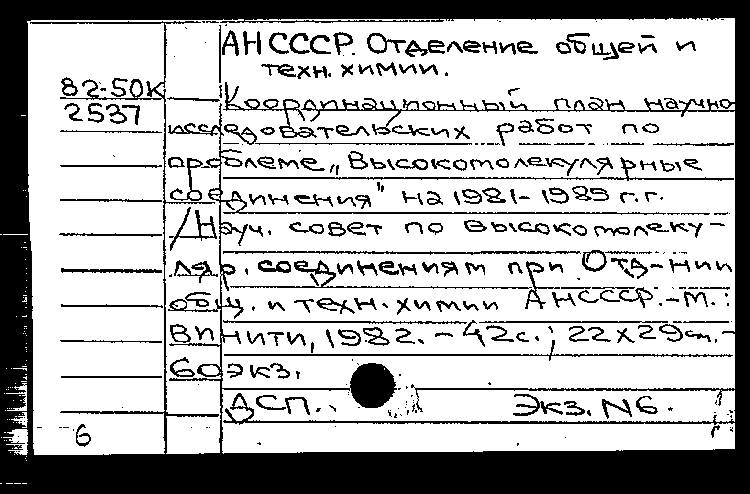 АН СССР. Отделение общей и
техн. химии.
82-50К
2537
Координационный план научно
исследовательских работ по
проблеме „Высокомолекулярные
соединения" на 1981-1985 г.г.
/Науч. совет по высокомолеку-
ляр. соединениям при Отд-нии
общ. и техн. химии АН СССР.-М.:
ВИНИТИ, 1982. - 42с.; 22х29см.-
60 экз.
ДСП. Экз. N6.
6